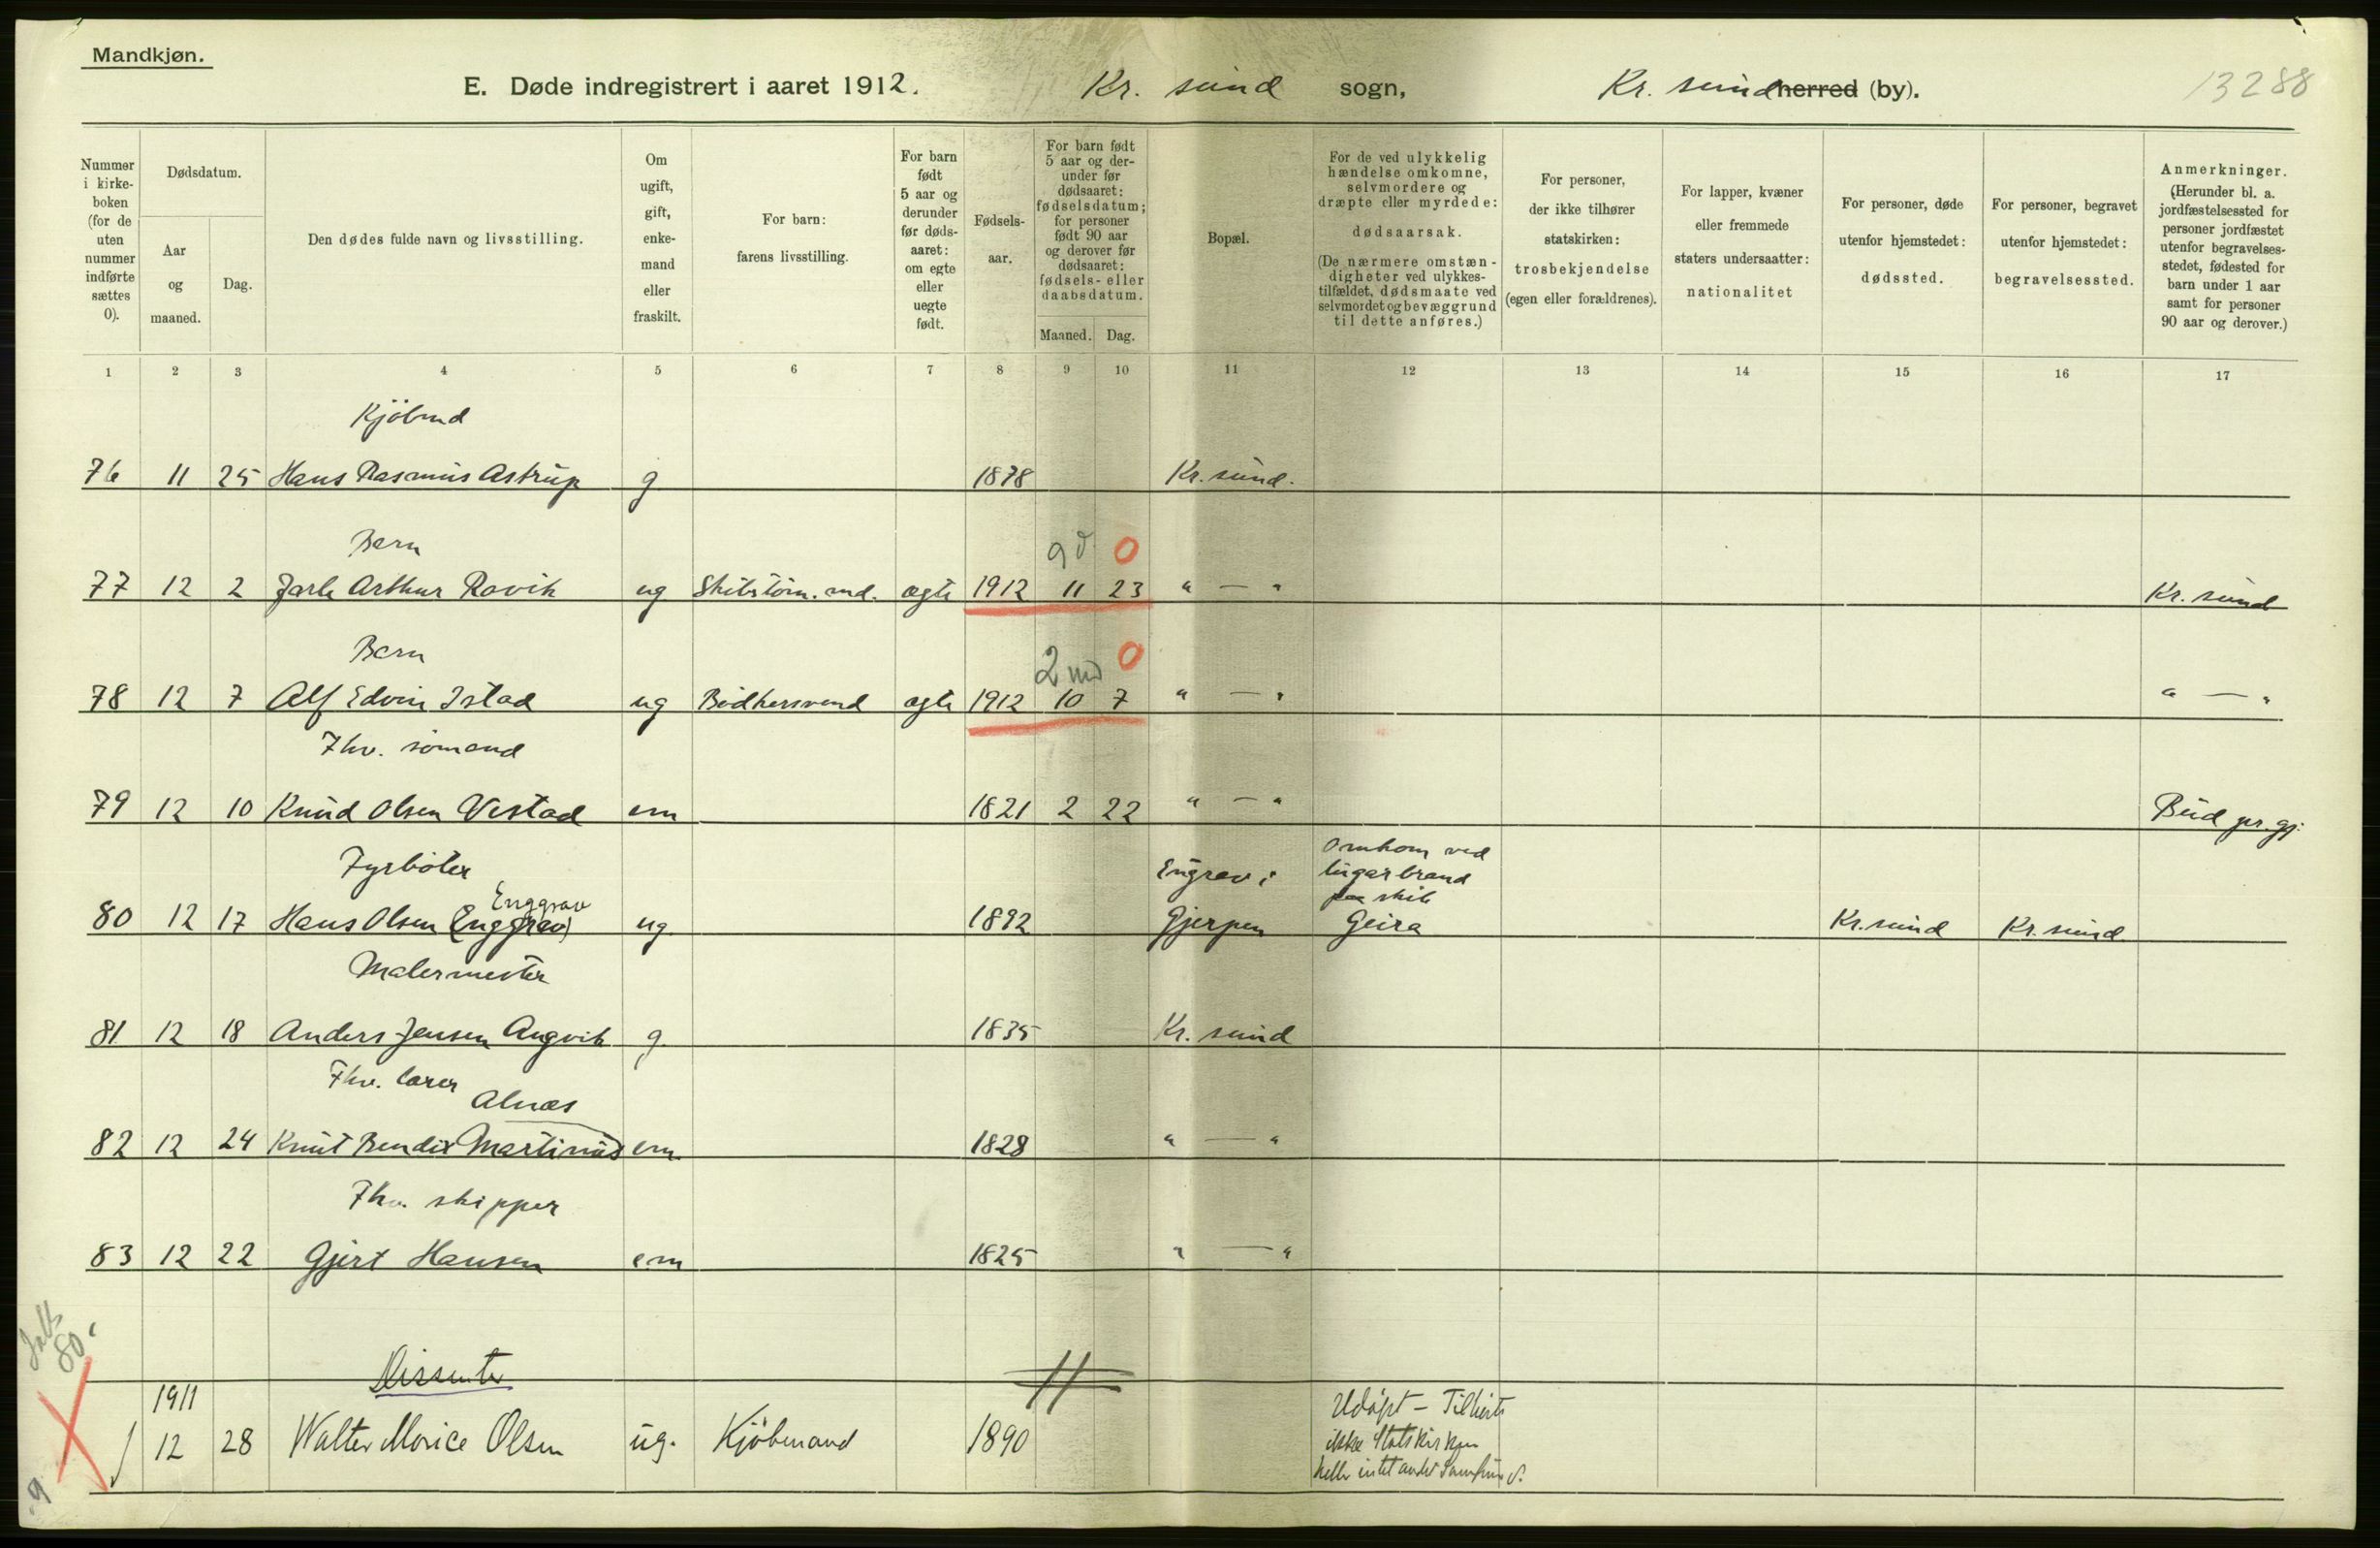 Mandkjøn.
E. Døde indregistrert i aaret 1912. Kr. sund sogn, Kr. sund herred (by). 13288
Nummer i kirkeboken (for de uten nummer indførte sættes 0).
Dødsdatum.
Aar og maaned.
Dag.
Den dødes fulde navn og livsstilling.
Om ugift, gift, enkemand eller fraskilt.
For barn: farens livsstilling.
For barn født 5 aar og derunder før dødsaaret: om egte eller uegte født.
Fødselsaar.
For barn født 5 aar og derunder før dødsaaret: fødselsdatum; for personer født 90 aar og derover før dødsaaret: fødsels- eller daabsdatum.
Maaned. Dag.
Bopæl.
For de ved ulykkelig hændelse omkomne, selvmordere og dræpte eller myrdede: dødsaarsak. (De nærmere omstændigheter ved ulykkestilfældet, dødsmaate ved selvmordet og bevæggrund til dette anføres.)
For personer, der ikke tilhører statskirken: trosbekjendelse (egen eller forældrenes).
For lapper, kvæner eller fremmede staters undersaatter: nationalitet
For personer, døde utenfor hjemstedet: dødssted.
For personer, begravet utenfor hjemstedet: begravelsessted.
Anmerkninger. (Herunder bl. a. jordfæstelsessted for personer jordfæstet utenfor begravelsesstedet, fødested for barn under 1 aar samt for personer 90 aar og derover.)
1 2 3 4 5 6 7 8 9 10 11 12 13 14 15 16 17
Kjöbmd
76 11 25 Hans Rasmus Astrup g 1878 Kr. sund.
Barn 9 d 0
77 12 2 Jarle Arthur Ravik ug ægte 1912 11 23 " — " Kr. sund
Barn 2 md 0
78 12 7 Alf Edvin Istad ug Bödkersvend ægte 1912 10 7 " — " " — "
Fhv. sömand
79 12 10 Knud Olsen Vestad em 1821 2 22 " — " Bud pr. gj.
Fyrböter Engrav i Omkom ved
Enggrav lugarbrand
paa skib
80 12 17 Hans Olsen (Enggrav) ug 1892 Gjerpen Geira Kr. sund Kr. sund
Malermester
81 12 18 Anders Jensen Angvik g 1835 Kr. sund
Fhv. lærer
Alnæs
82 12 24 Knut Bendix Martinus em 1828 " — "
Fhv. skipper
83 12 22 Gjert Hansen em 1825 " — "
80
Dissenter
1911 Udöpt – Tilhörte
12 28 Walter Morice Olsen ug. Kjöbmand 1890 ikke Statskirken
heller intet andet Samfund.
9